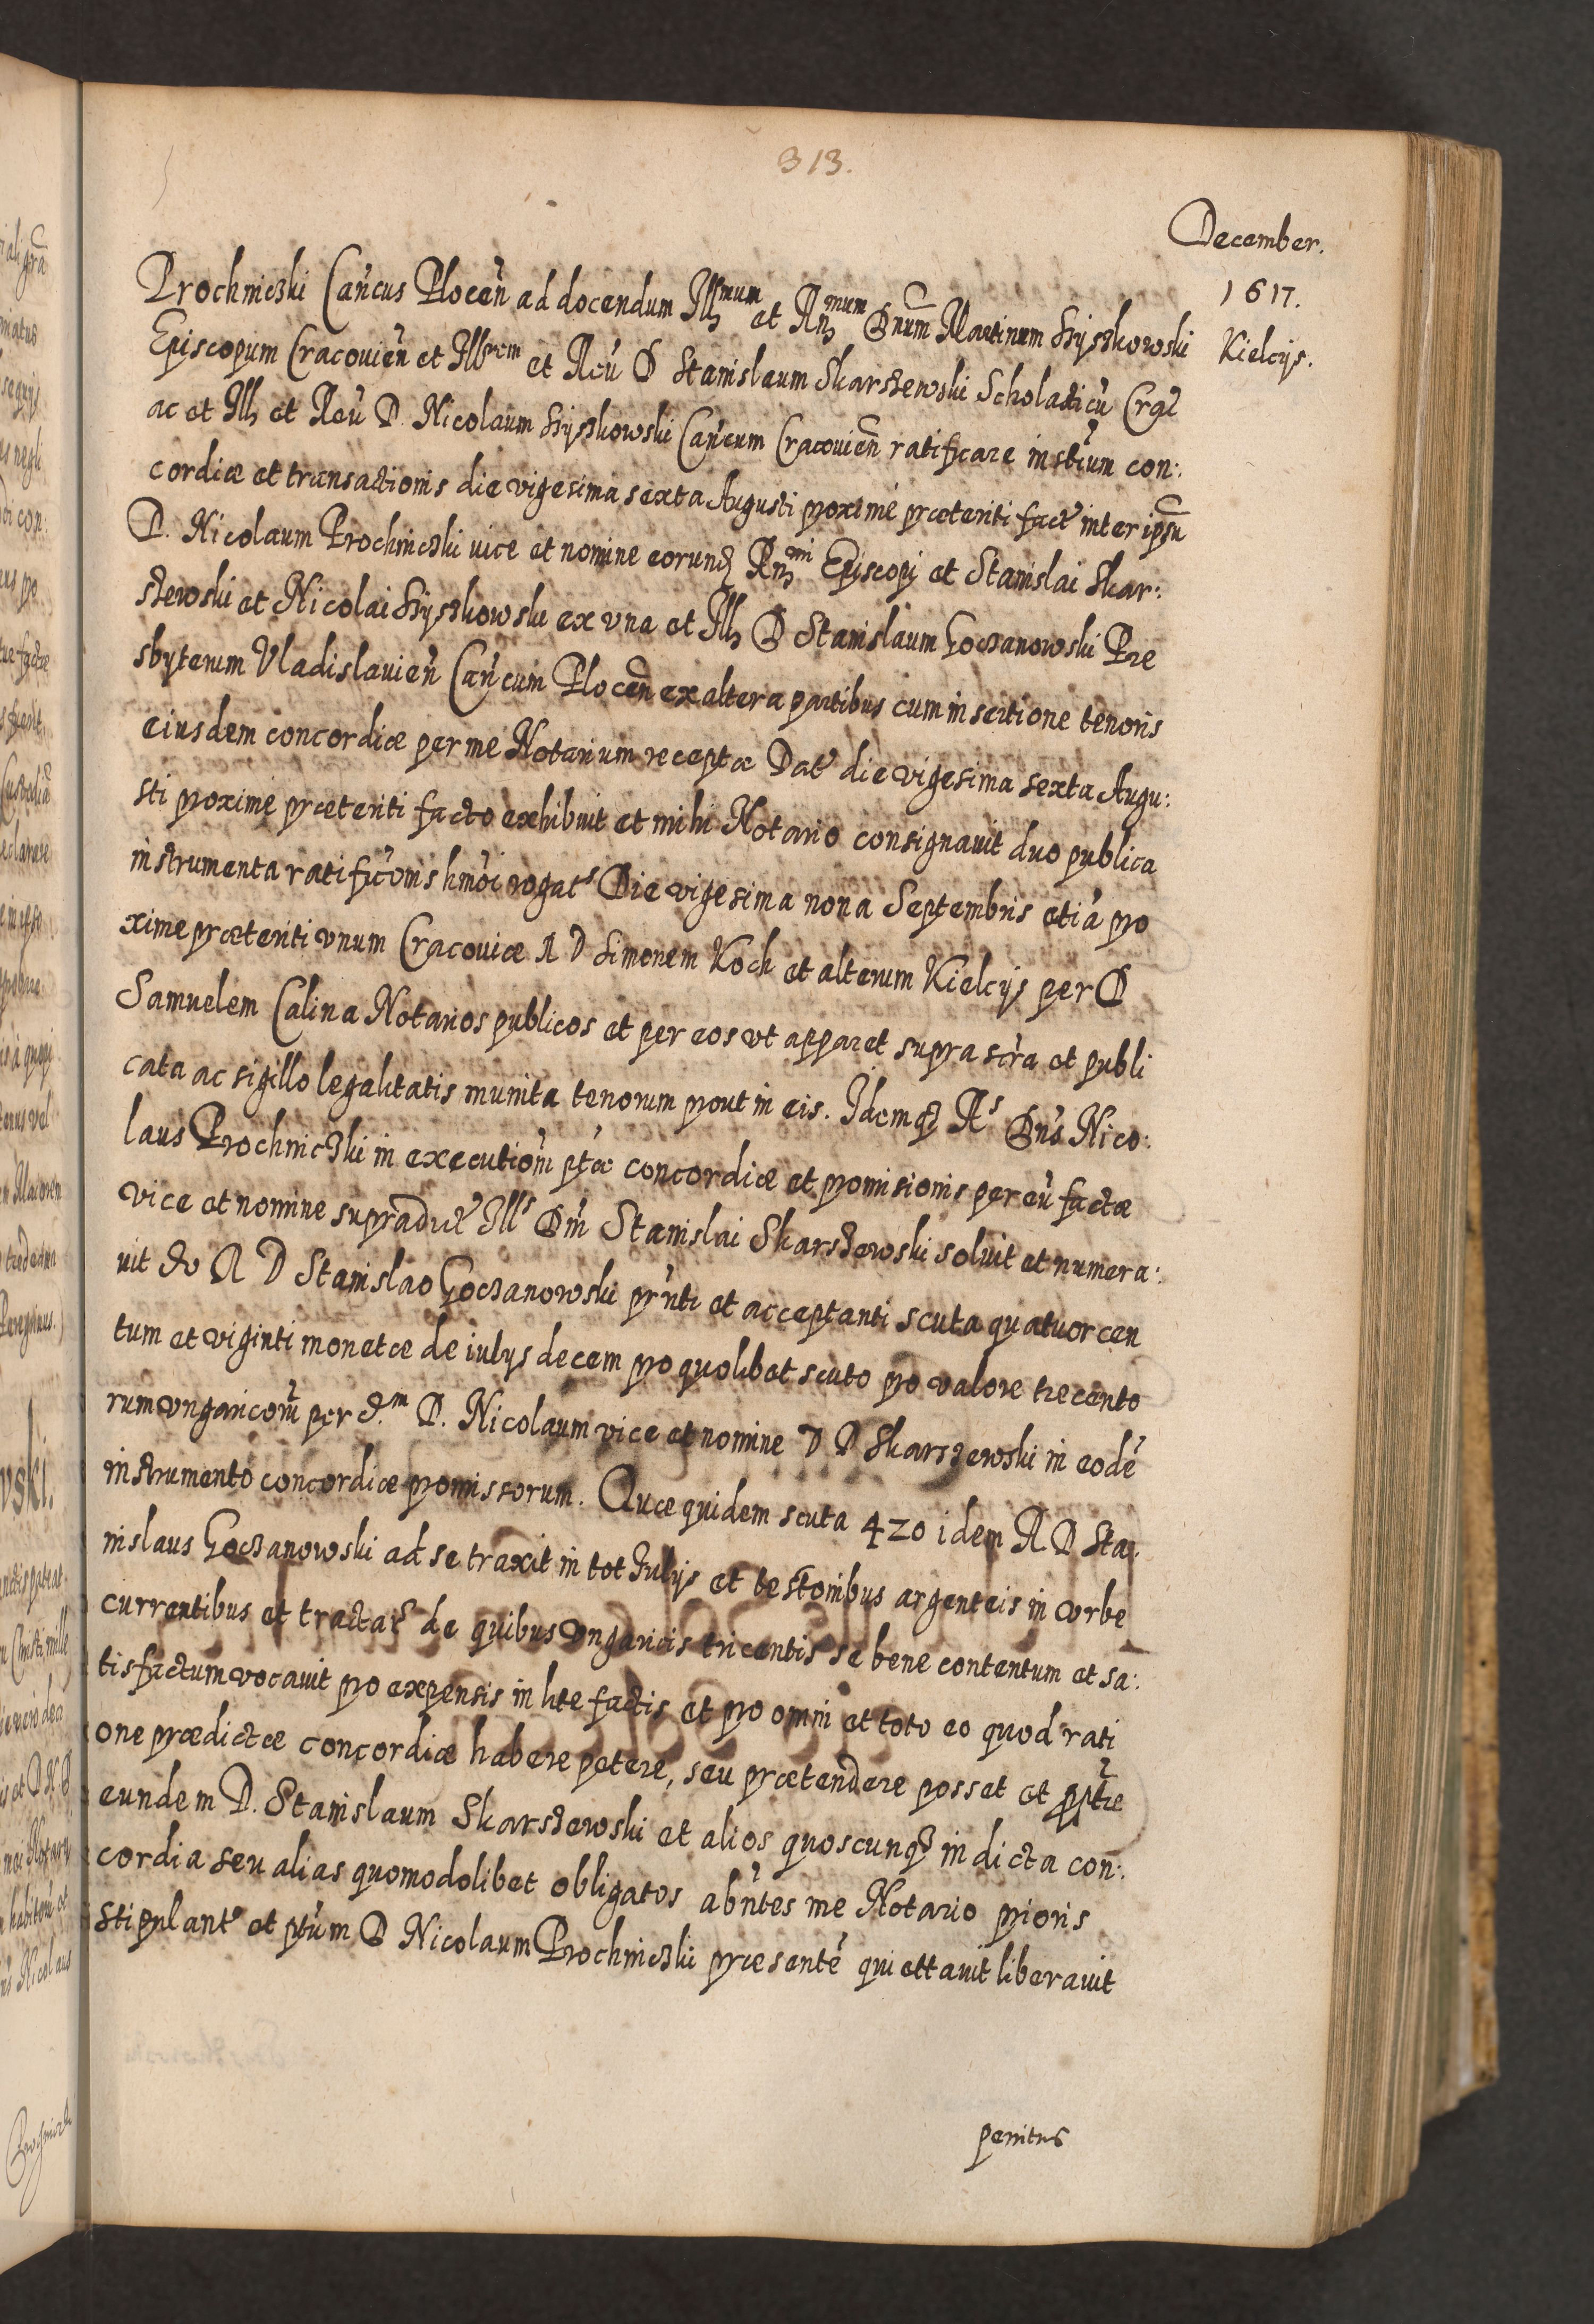 313.
December.
1617.
Kielcijs.
Prochniczki Cañcus Plocen̄ ad docendum Illmum et Rmum Dnum Martinum Szyszkowski
Episcopum Cracouien̄ et Illrem et Reū D Stanislaum Skarszewski Scholasticū
ac et Ill et Reū D. Nicolaum Szyszkowski Cañcum Cracouien̄ ratificare instr̄um con:
cordiæ et transactionis die vigesima sexta Augusti proximé præteriti fact inter ipsū
D. Nicolaum Prochniczki uice et nomine eorund Rmi Episcopi et Stanislai Skar:
szewski et Nicolai Szyszkowski ex vna et Ill D Stanislaum Goczanowski Pre
sbyterum Vladislauien̄ Cañcum Plocen̄ ex altera partibus cum insertione tenoris
eiusdem concordiæ per me Notarium receptæ Dat die vigesima sexta Augu:
sti proximé præteriti facto exhibuit et mihi Notario consignauit duo publica
instrumenta ratificōnis hmōi rogats Die vigesima nona Septembris etiā pro
xime præteriti vnum Cracouiæ R D Simonem Koch et alterum Kielcijs per D
Samuelem Calina Notarios publicos et per eos vt apparet supra scr̄a et publi
cata ac sigillo legalitatis munita tenorum prout in eis. Idemq Rs Dñs Nico:
laus Prochniczki in executiōm ptæ concordiæ et promisionis per eū factæ
vice et nomine supradict Ills Dn̄i Stanislai Skarszewski soluit et numera:
uit do R D Stanislao Goczanowski prn̄ti et acceptanti scuta quatuor cen
tum et viginti monetæ de iulijs decem pro quolibet scuto pro valore trecento
rum vngaricorū per d.m D. Nicolaum vice et nomine D D Skarszewski in eodé
instrumento concordiæ promissorum. Quæ quidem scuta 420 idem R D Sta:
nislaus Goczanowski ad se traxit in tot Iulijs et testonibus argenteis in vrbe
currentibus et tractats de quibus vngaricis tricentis se bene contentum et sa:
tisfactum vocauit pro expensis in lite factis et pro omni et toto eo quod rati
one prædictæ concordiæ habere petere, seu prætendere posset et pptre
eundem D. Stanislaum Skarszewski et alios quoscunq in dicta con:
cordia seu alias quomodolibet obligatos abn̄tes me Notario prioris
stipulant et ptum D Nicolaum Prochniczki præsenté quiettauit liberauit
penitus